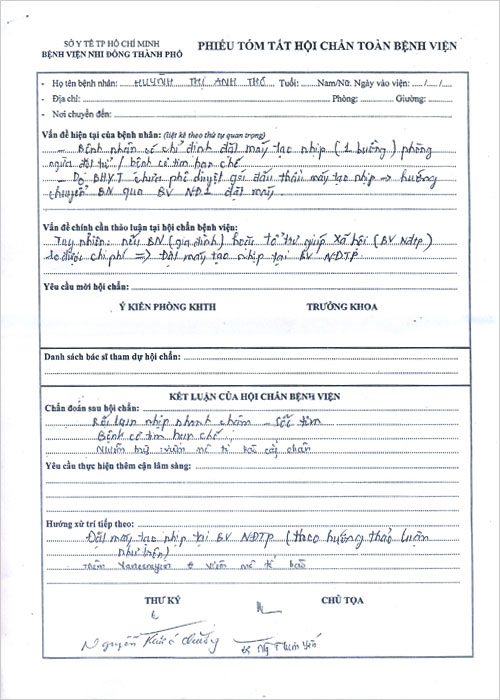 SỞ Y TẾ TP HỒ CHÍ MINH
BỆNH VIỆN NHI ĐỒNG THÀNH PHỐ
PHIẾU TÓM TẮT HỘI CHẨN TOÀN BỆNH VIỆN
- Họ tên bệnh nhân: HUỲNH THỊ ANH THƠ Tuổi: Nam/Nữ. Ngày vào viện: / /
- Địa chỉ: Phòng: Giường:
- Nơi chuyển đến:
Vấn đề hiện tại của bệnh nhân: (liệt kê theo thứ tự quan trọng)
- Bệnh nhân có chỉ định đặt máy tạo nhịp (1 buồng) phòng
ngừa đột tử / bệnh cơ tim hạn chế
- Do BHYT chưa phê duyệt gói đấu thầu máy tạo nhịp → hướng
chuyển BN qua BV NĐ1 đặt máy
Vấn đề chính cần thảo luận tại hội chẩn bệnh viện:
Tuy nhiên: nếu BN (gia đình) hoặc tổ trợ giúp xã hội (BV NĐTP)
lo được chi phí => Đặt máy tạo nhịp tại BV NĐTP.
Yêu cầu mời hội chẩn:
Ý KIẾN PHÒNG KHTH TRƯỞNG KHOA
Danh sách bác sĩ tham dự hội chẩn:
KẾT LUẬN CỦA HỘI CHẨN BỆNH VIỆN
Chẩn đoán sau hội chẩn:
Rối loạn nhịp nhanh chậm - Sốc tim
Bệnh cơ tim hạn chế
viêm mô tế bào cẳng chân
Yêu cầu thực hiện thêm cận lâm sàng:
Hướng xử trí tiếp theo:
Đặt máy tạo nhịp tại BV NĐTP (theo hướng thảo luận
như trên)
thêm Vancomycin viêm mô tế bào
THƯ KÝ CHỦ TỌA
Nguyễn